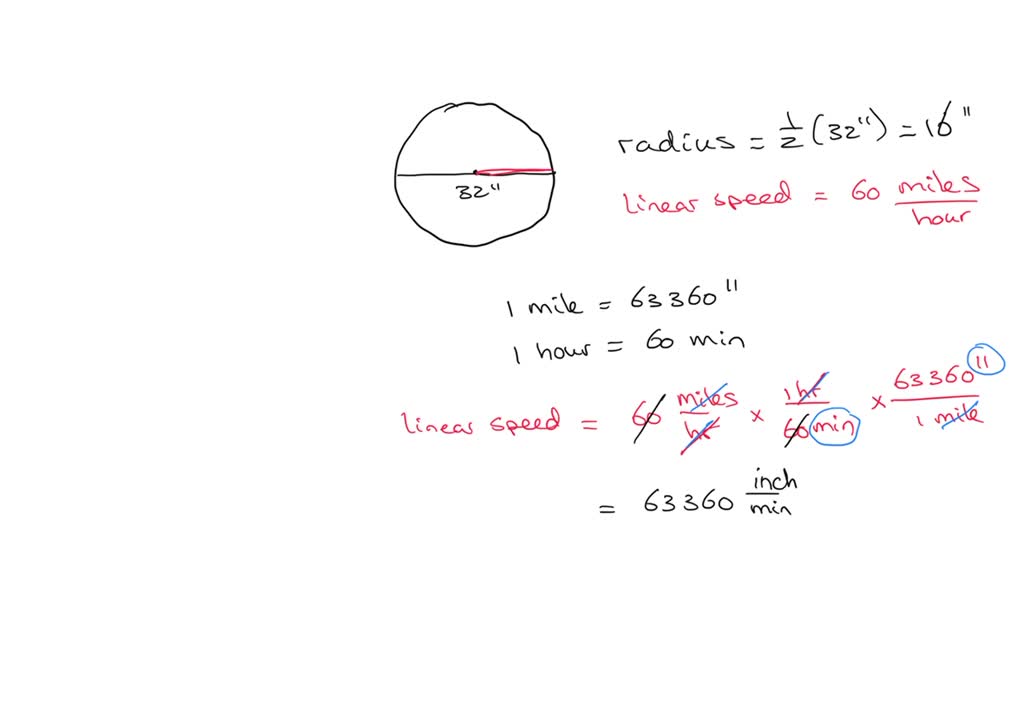 32"
radius = 1/2 (32") = 16"
linear speed = 60 miles/hour
1 mile = 63360"
1 hour = 60 min
linear speed = 60 miles/hr × 1 hr/60 min × 63360"/1 mile
= 63360 inch/min